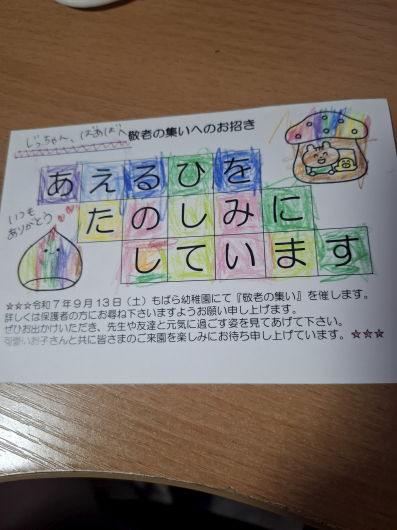 じっちゃん、ばあばへ
敬老の集いへのお招き
あえるひを
たのしみに
しています
いつも
ありがとう
☆☆☆令和7年9月13日（土）もばら幼稚園にて『敬老の集い』を催します。
詳しくは保護者の方にお尋ね下さいますようお願い申し上げます。
ぜひお出かけいただき、先生や友達と元気に過ごす姿を見てあげて下さい。
可愛いお子さんと共に皆さまのご来園を楽しみにお待ち申し上げています。☆☆☆